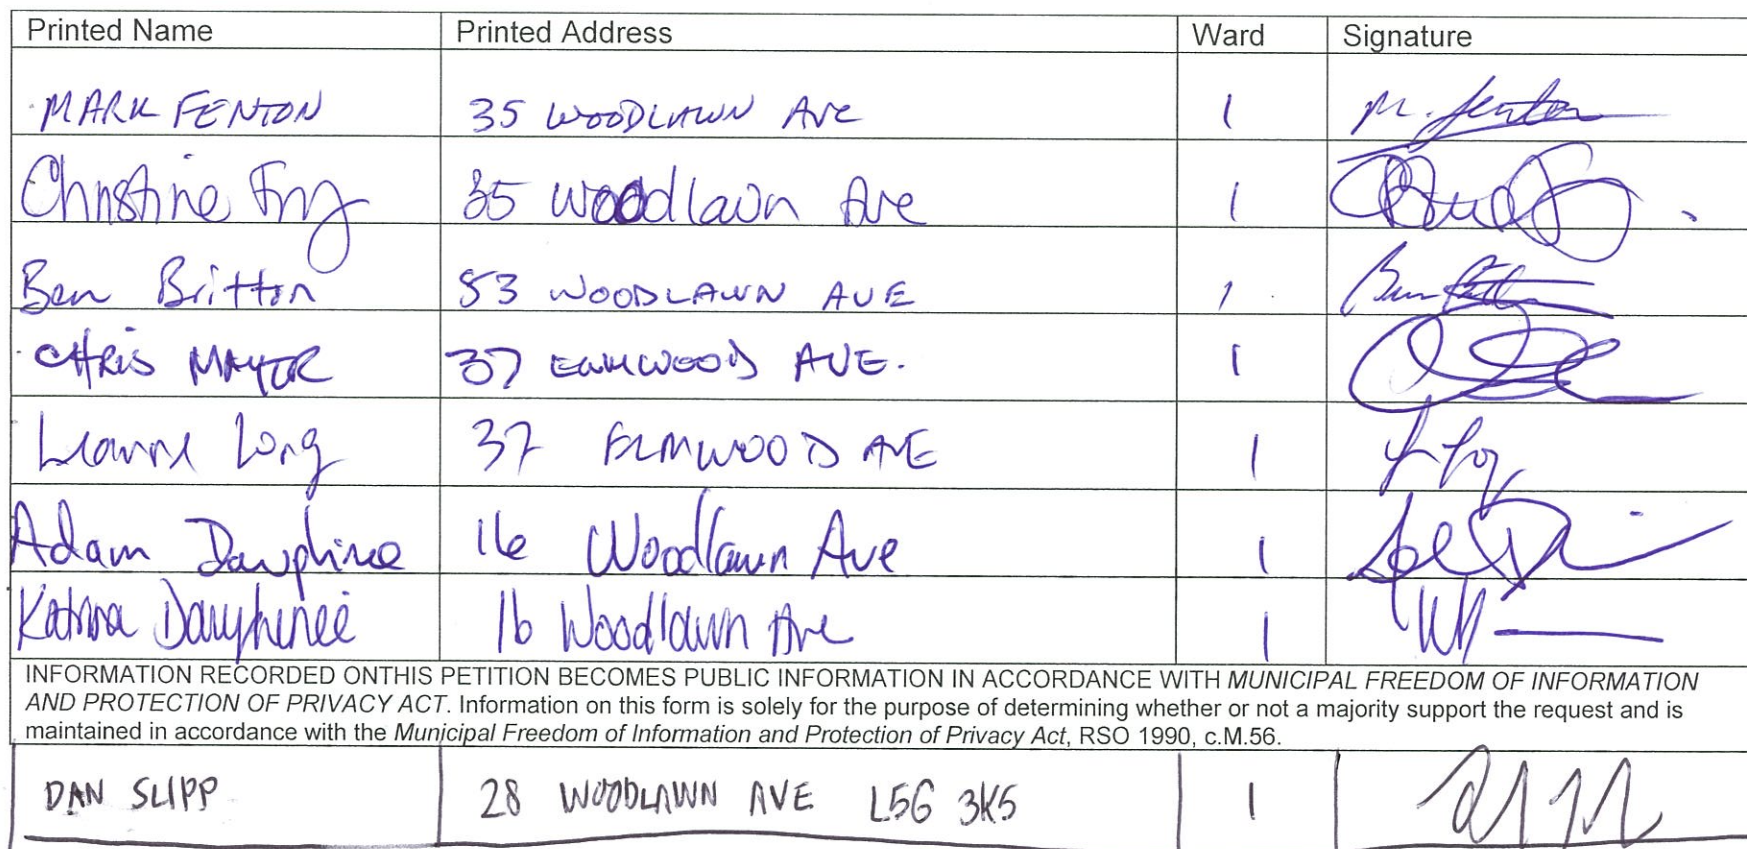 Printed Name Printed Address Ward Signature
MARK FENTON 35 WOODLAWN AVE 1 M. Fenton
Christine Fry 35 Woodlawn Ave 1
Ben Britton 53 WOODLAWN AVE 1 Ben Britton
CHRIS MAYOR 37 ELMWOOD AVE. 1
Leanne Long 37 ELMWOOD AVE 1
Adam Dauphinee 16 Woodlawn Ave 1
Katrina Dauphinee 16 Woodlawn Ave 1
INFORMATION RECORDED ONTHIS PETITION BECOMES PUBLIC INFORMATION IN ACCORDANCE WITH MUNICIPAL FREEDOM OF INFORMATION
AND PROTECTION OF PRIVACY ACT. Information on this form is solely for the purpose of determining whether or not a majority support the request and is
maintained in accordance with the Municipal Freedom of Information and Protection of Privacy Act, RSO 1990, c.M.56.
DAN SLIPP 28 WOODLAWN AVE L5G 3K5 1